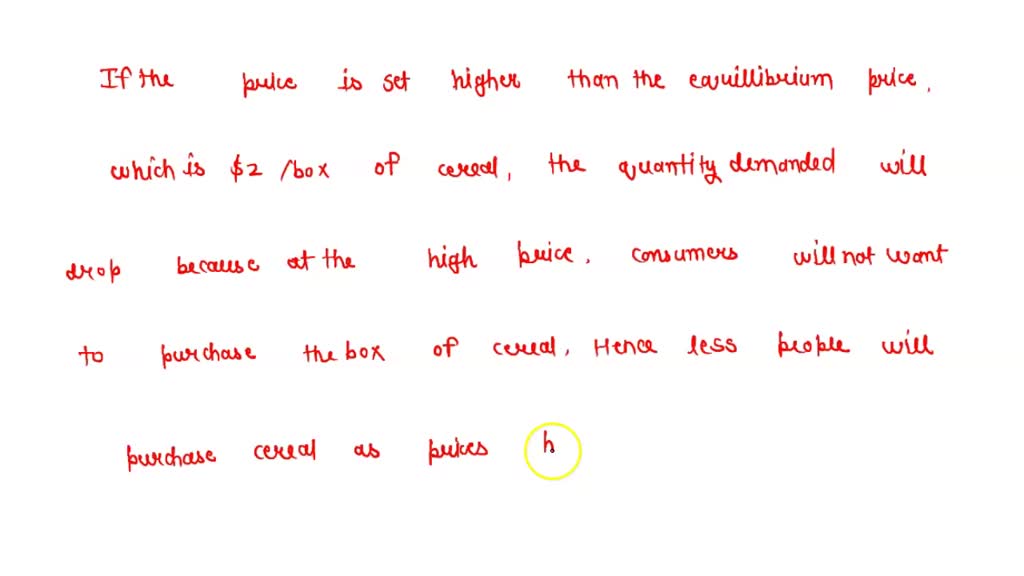 If the price is set higher than the equillibrium price,
which is $2 /box of cereal, the quantity demanded will
drop because at the high price, consumers will not want
to purchase the box of cereal, Hence less people will
purchase cereal as prices h